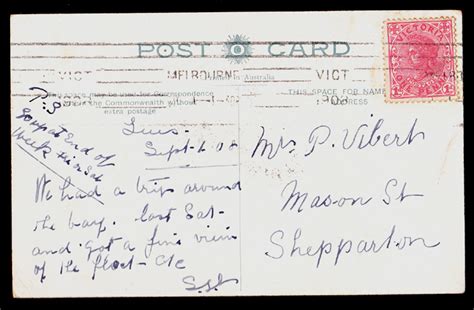 POST CARD
VICTORIA
ONE PENNY
VICT MELBOURNE VICT
1908
Australia
may be used for Correspondence
the Commonwealth without
extra postage
THIS SPACE FOR NAME
ADDRESS
P.S
End of
week
Sept
We had a trip around
the bay. last Sat-
and got a fine view
of the fleet -
Mrs P. Vibert
Mason St
Shepparton